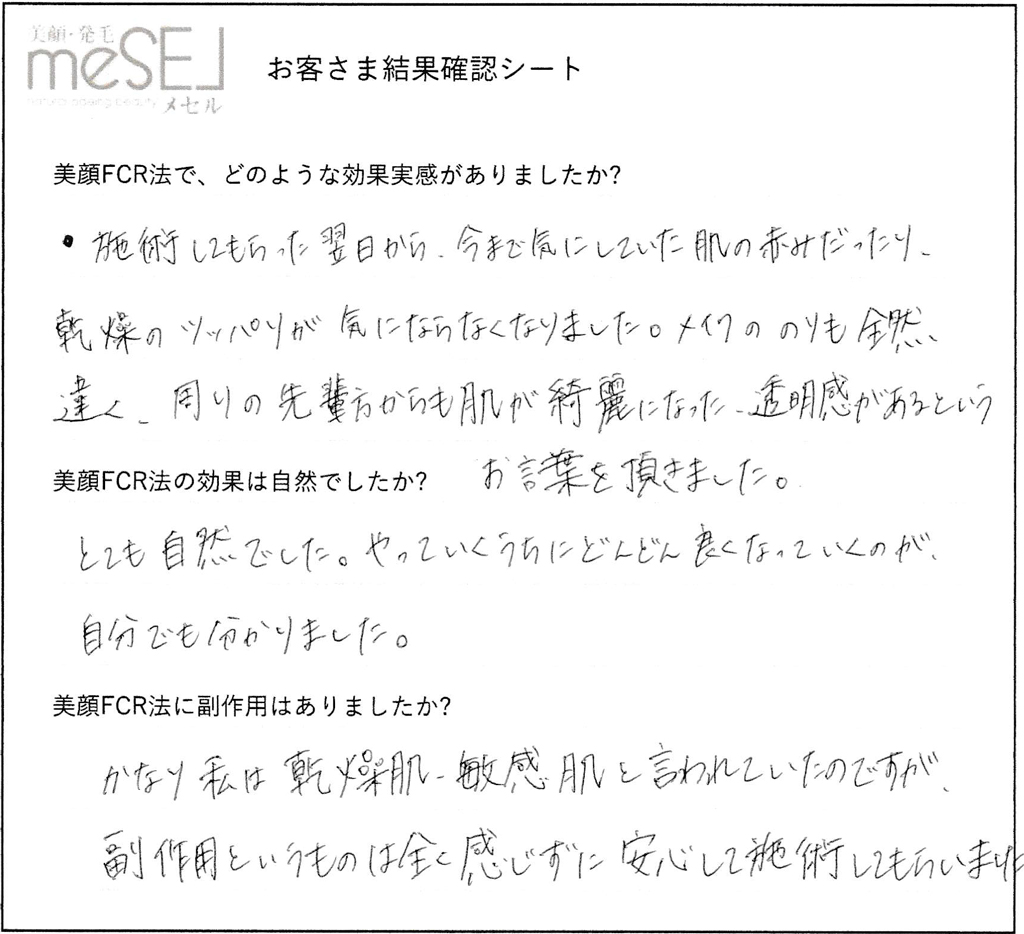 美顔・発毛
meSEL
natural ageing beauty
メセル
お客さま結果確認シート
美顔FCR法で、どのような効果実感がありましたか?
・施術してもらった翌日から、今まで気にしていた肌の赤みだったり、
乾燥のツッパリが気にならなくなりました。メイクののりも全然、
違く、周りの先輩方からも肌が綺麗になった、透明感があるという
お言葉を頂きました。
美顔FCR法の効果は自然でしたか?
とても自然でした。やっていくうちにどんどん良くなっていくのが、
自分でも分かりました。
美顔FCR法に副作用はありましたか?
かなり私は乾燥肌、敏感肌と言われていたのですが、
副作用というものは全く感じずに安心して施術してもらいました